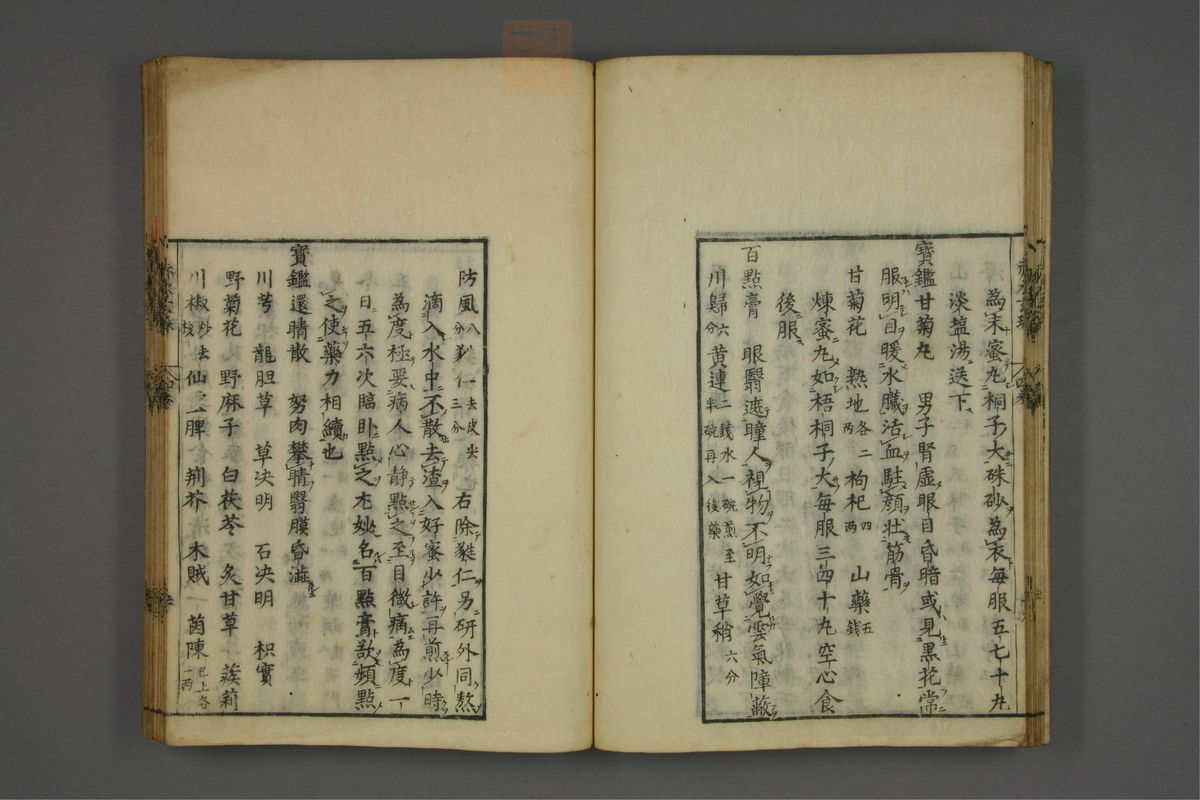 為末蜜丸桐子大硃砂為衣每服五七十丸
淡塩湯送下
寶鑑甘菊丸 男子腎虛眼目昏暗或見黑花常
服明目暖水臟活血駐顔壮筋骨
甘菊花 熟地各二両 枸杞四両 山藥五錢
煉蜜丸如梧桐子大每服三四十丸空心食
後服
百點膏 眼翳遮瞳人視物不明如覺雲氣障蔽
川歸六分 黄連二錢水一碗煎至半碗再入後藥 甘草稍六分
防風八分 蕤仁去皮尖三分 右除蕤仁另研外同熬
滴入水中不散去渣入好蜜少許再煎少時
為度極要病人心静點之至目微痛為度一
日五六次臨卧點之尤妙名百點膏欲頻點
之使藥力相續也
寶鑑還睛散 努肉攀睛翳膜昏澁
川芎 龍胆草 草决明 石决明 枳實
野菊花 野麻子 白茯苓 炙甘草 蒺莉
川椒炒去核 仙灵脾 荆芥 木賊 茵陳已上各一両